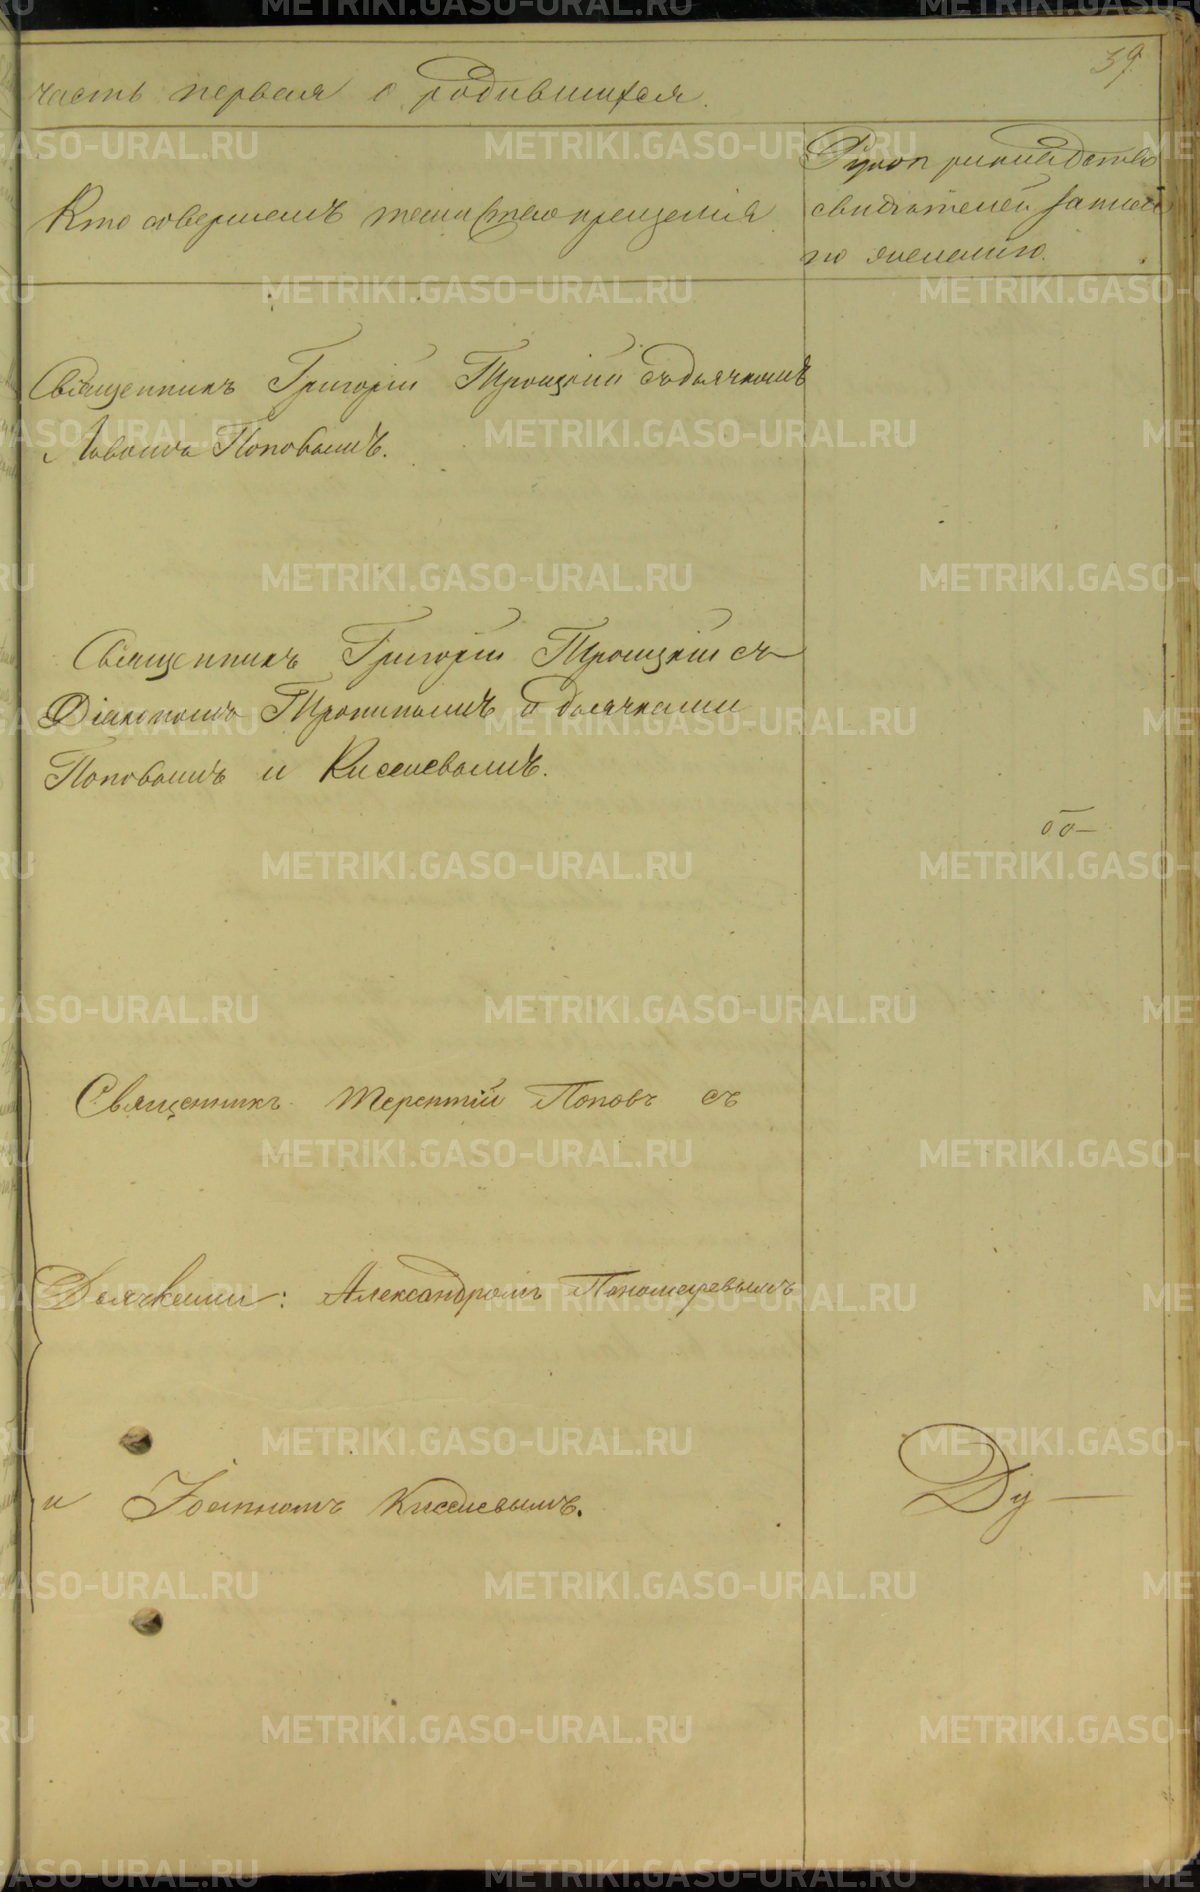 39
часть первая о родившихся.
Кто совершалъ таинство крещенія.
свидѣтелей записи
по желанію.
Священникъ Григорій Троицкій съ дьячкомъ
Поповымъ.
Священникъ Григорій Троицкій съ
Діакономъ и дьячками
Поповымъ и Киселевымъ.
Священникъ Терентій Поповъ съ
Дьячками: Александромъ Пономаревымъ
и Іоанномъ Киселевымъ.
METRIKI.GASO-URAL.RU